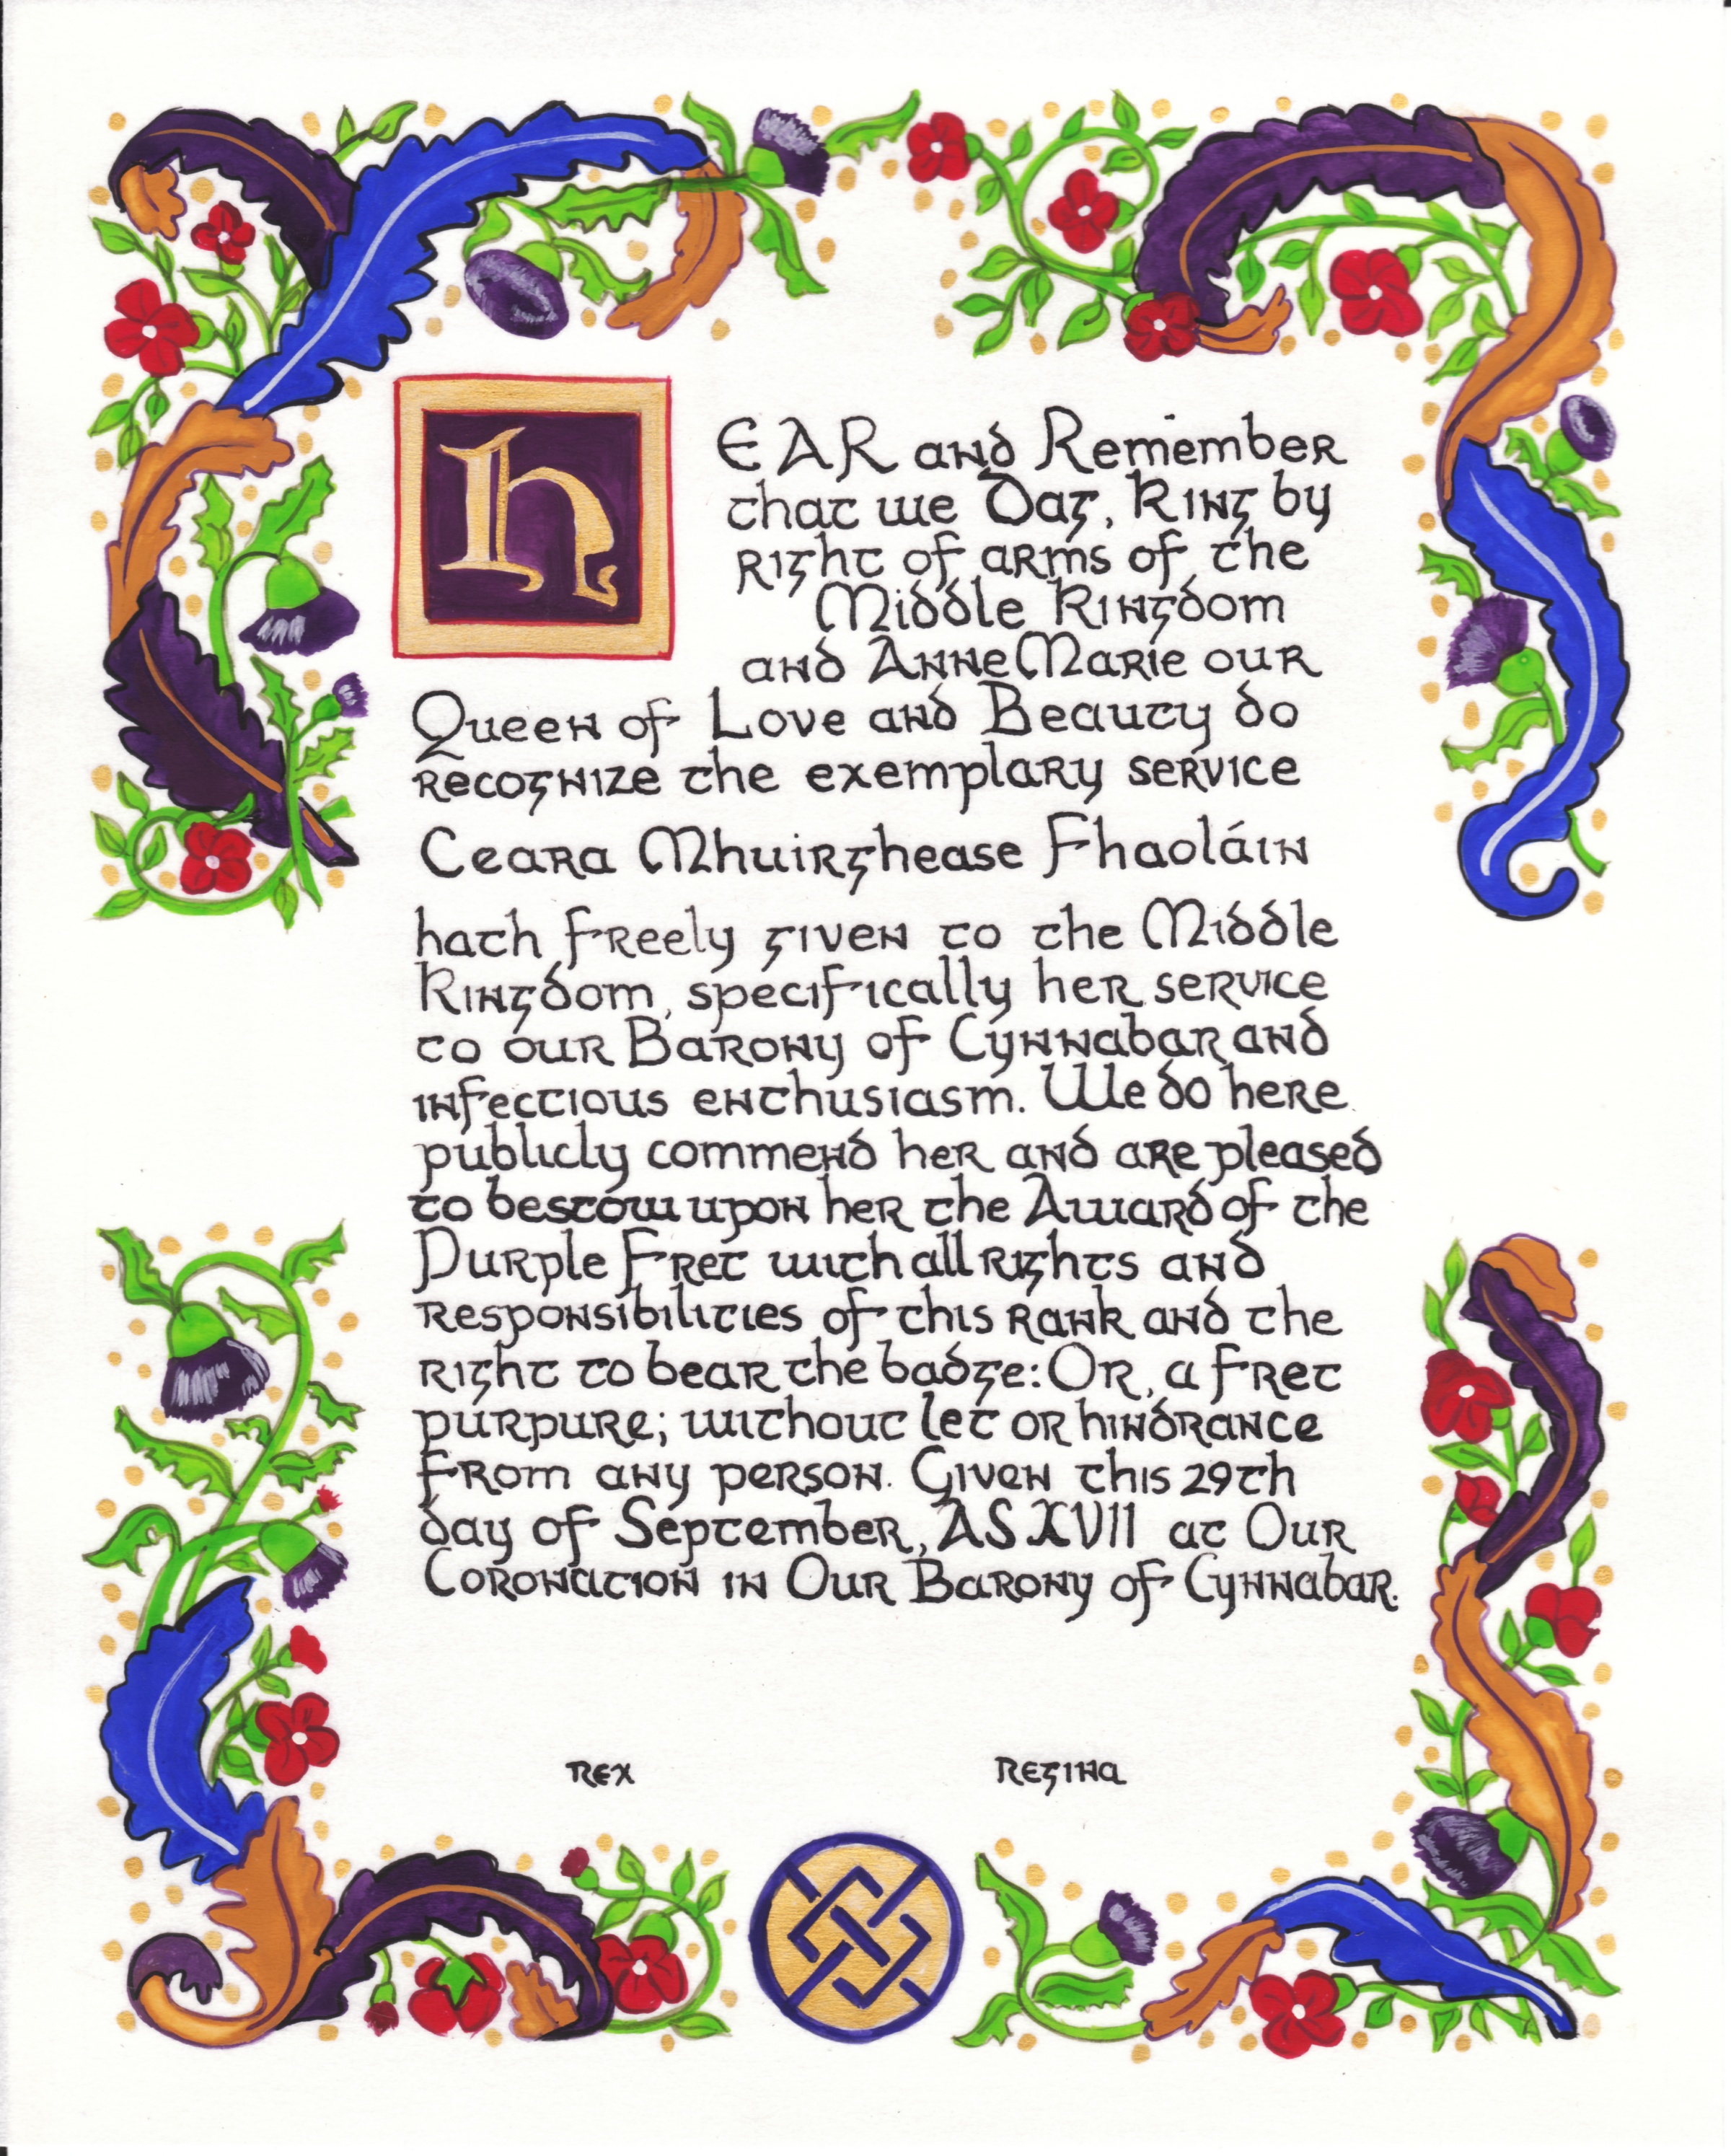 hEAR and Remember
that we Dag, King by
right of arms of the
Middle Kingdom
and AnneMarie our
Queen of Love and Beauty do
recognize the exemplary service
Ceara Mhuirghease Fhaoláin
hath freely given to the Middle
Kingdom, specifically her service
to our Barony of Cynnabar and
infectious enthusiasm. We do here
publicly commend her and are pleased
to bestow upon her the Award of the
Purple Fret with all rights and
responsibilities of this rank and the
right to bear the badge: Or, a fret
purpure; without let or hindrance
from any person. Given this 29th
day of September, AS XVII at Our
Coronation in Our Barony of Cynnabar.
Rex Regina